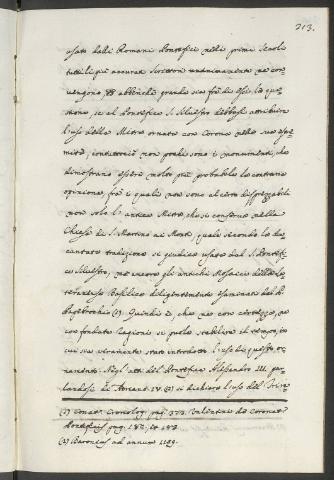 213.
usata dalli Romani Pontefici nelli primi Secoli
tutti li più accurati Scrittori unanimamente ne con-
vengono, ed abbenchè grande sia frà di essi la que-
stione, se al Pontefice S. Silvestro debbasi attribuire
l'uso della Mitra ornata con Corona nella sua estre-
mità, contuttociò non pochi sono i monumenti, che
dimostrano essere molto più probabile la contraria
opinione, frà i quali non sono al certo disprezzabili
non solo l'antica Mitra, che si conserva nella
Chiesa di S. Martino ai Monti, quale secondo la de-
cantata tradizione si giudica usata dal S. Pontefi-
ce Silvestro, ma ancora gli antichi Mosaici della La-
teranense Basilica diligentemente esaminati dal P.
Papebrochio (1). Quindi è, che nè con certezza, nè
con fondate ragioni si puole stabilire il tempo, in
cui sia veramente stato introdotto l'uso di questo or-
namento. Negl'atti del Pontefice Alessandro III. pu-
blicati di (2) si dichiara l'uso del
(1) Conat. Cronolog. pag. Valentini de Coronat.
Pontificis pag. 182. et 183
(2) Baronius ad annum 1159.